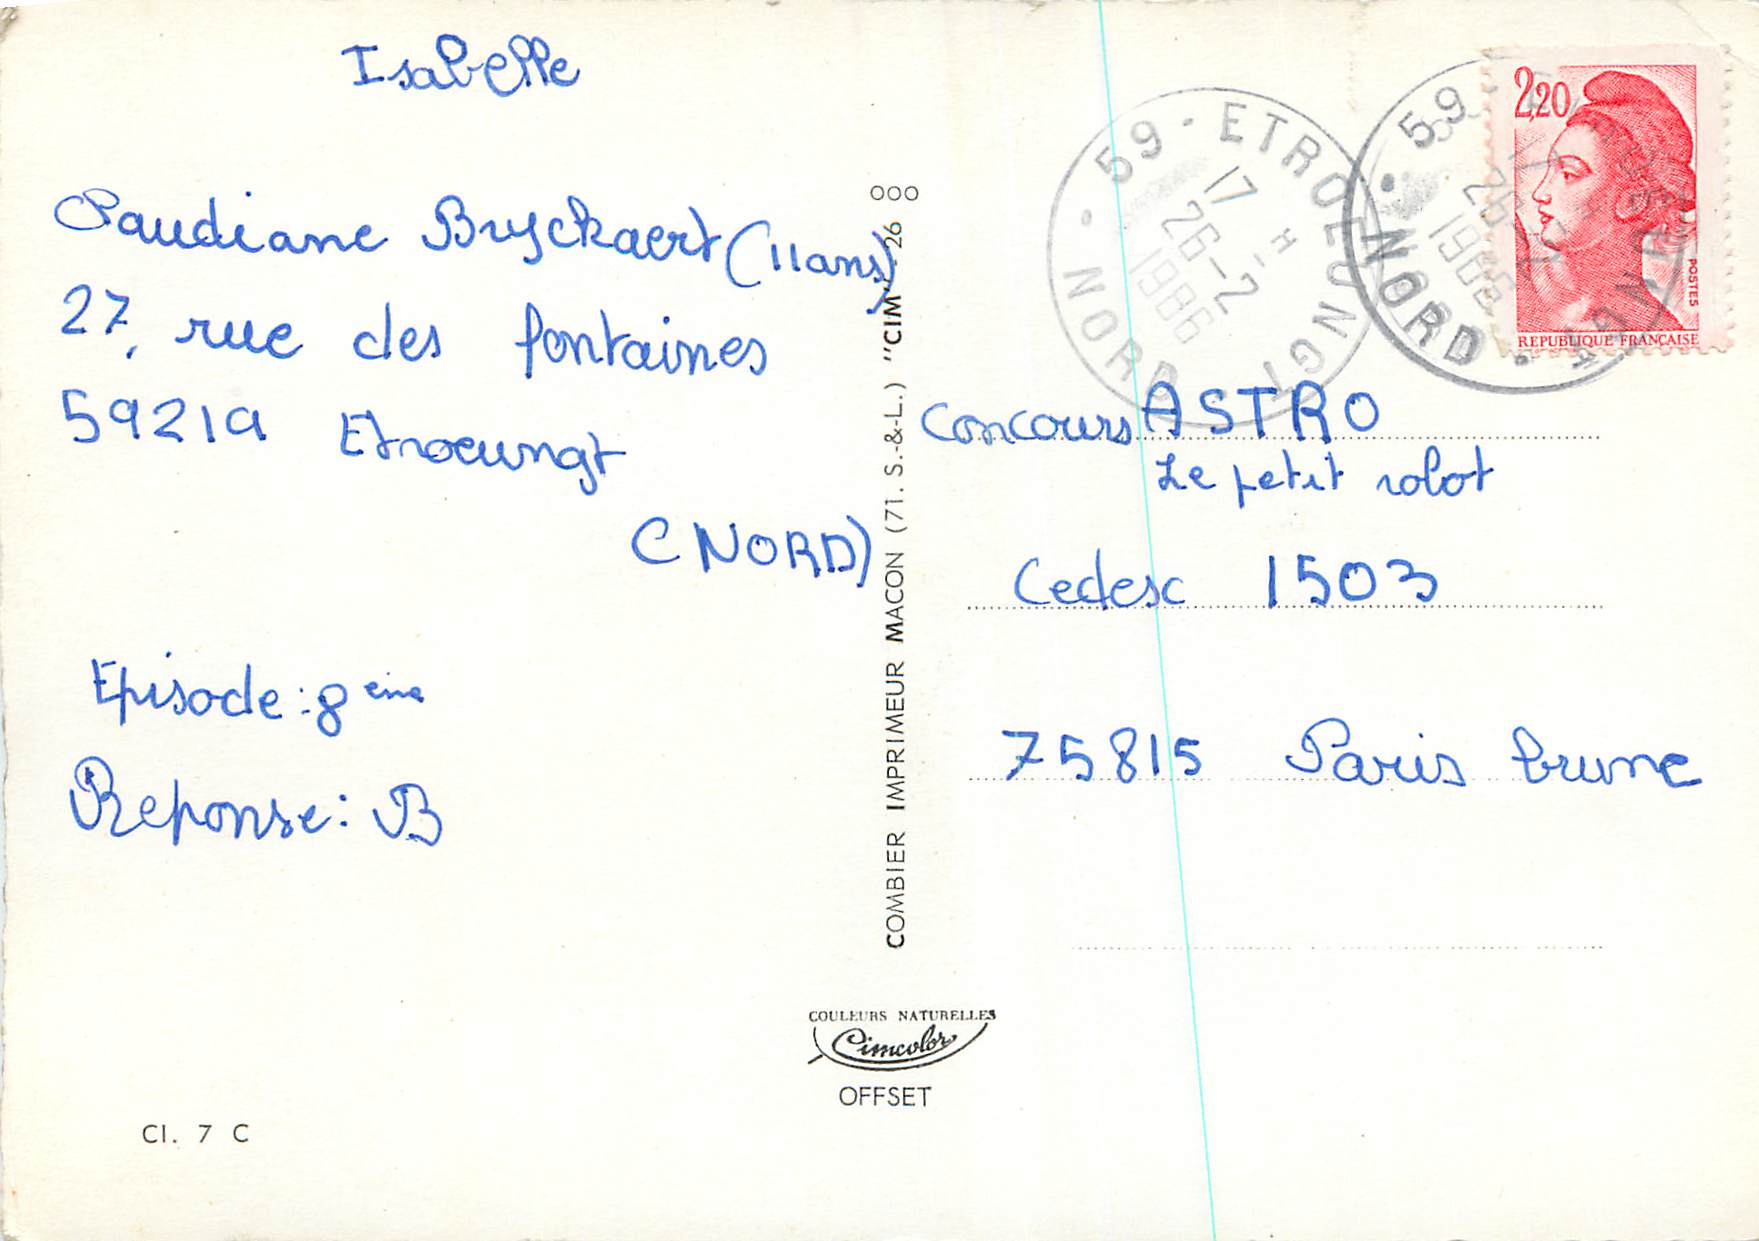 Isabelle
Paudiane Bruyckaert (11ans)
27, rue des fontaines
59219 Etroeungt
(NORD)
Episode : 8 eme
Reponse : B
Cl. 7 C
OOO
COMBIER IMPRIMEUR MACON (71. S.-&-L.) "CIM" 26
COULEURS NATURELLES
Cimcolor
OFFSET
59 - ETROEUNGT
17 H
26-2
1986
NORD
59
NORD
2,20
POSTES
REPUBLIQUE FRANÇAISE
Concours ASTRO
Le petit robot
Cedesc 1503
75815 Paris brune